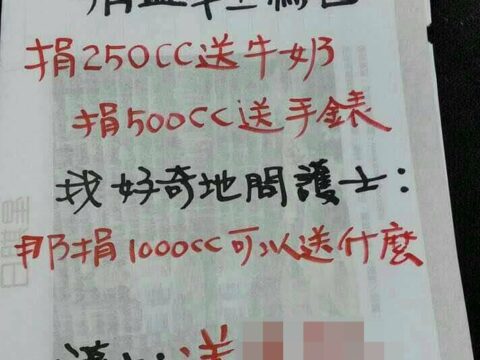 捐250CC送牛奶
捐500CC送手錶
我好奇地問護士：
那捐1000cc可以送什麼
護士：送